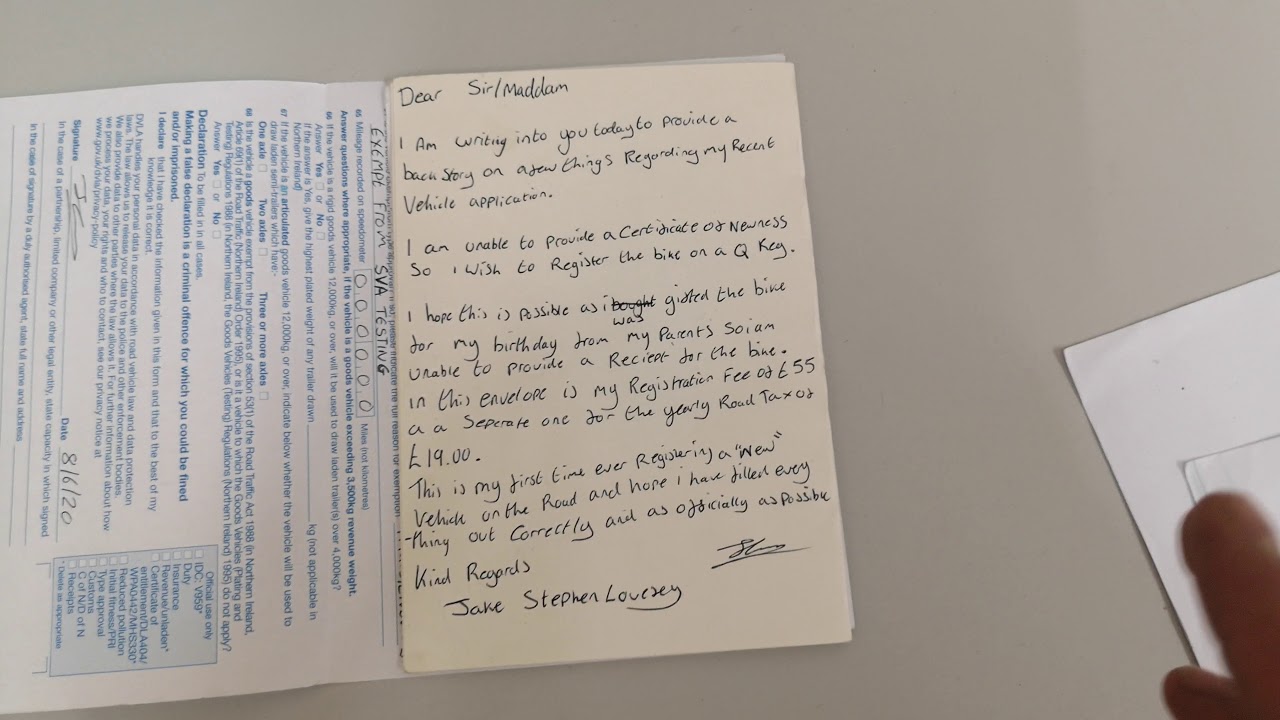 Dear Sir/Maddam
I Am writing into you today to Provide a
back story on a few things Regarding my Recent
Vehicle application.
I am unable to Provide a Certificate of Newness
So i Wish to Register the bike on a Q Reg.
I hope this is Possible as i bought gifted the bike
was
for my birthday from my Parents So i am
unable to provide a Reciept for the bike.
in this envelope is my Registration Fee of £55
a a Seperate one for the yearly Road Tax of
£19.00.
This is my first time ever Registering a "New"
Vehicle on the Road and hope i have filled every
-thing out Correctly and as officially as possible
Kind Regards
Jake Stephen Lovesey
EXEMPT FROM SVA TESTING
65 Mileage recorded on speedometer 0 0 0 0 0 0 Miles (not kilometres)
Answer questions where appropriate, if the vehicle is a goods vehicle exceeding 3,500kg revenue weight.
66 If the vehicle is a rigid goods vehicle 12,000kg, or over, will it be used to draw laden trailer(s) over 4,000kg?
Answer Yes or No
If the answer is Yes, give the highest plated weight of any trailer drawn kg (not applicable in
Northern Ireland)
67 If the vehicle is an articulated goods vehicle 12,000kg, or over, indicate below whether the vehicle will be used to
draw laden semi-trailers which have:-
One axle Two axles Three or more axles
68 Is the vehicle a goods vehicle exempt from the provisions of section 53(1) of the Road Traffic Act 1988 (in Northern Ireland,
Article 69(1) of the Road Traffic (Northern Ireland) Order 1995), or is it a vehicle to which the Goods Vehicles (Plating and
Testing) Regulations 1988 (in Northern Ireland, the Goods Vehicles (Testing) Regulations (Northern Ireland) 1995) do not apply?
Answer Yes or No
Declaration To be filled in in all cases.
Making a false declaration is a criminal offence for which you could be fined
and/or imprisoned.
I declare that I have checked the information given in this form and that to the best of my
knowledge it is correct.
DVLA handles your personal data in accordance with road vehicle law and data protection
laws. The law allows us to release your data to the police and other enforcement bodies.
We also provide data to others where the law allows it. For further information about how
we process your data, your rights and who to contact, see our privacy notice at
www.gov.uk/dvla/privacy-policy
Signature Date 8/6/20
In the case of a partnership, limited company or other legal entity, state capacity in which signed
In the case of signature by a duly authorised agent, state full name and address
Official use only
IDC: V959*
Duty
Insurance
Revenue/unladen*
Certificate of
entitlement/DLA404/
WPA0442/MHS330*
Reduced pollution
Initial fitness/PRI
Type approval
Customs
C of N/D of N
Receipts
* Delete as appropriate